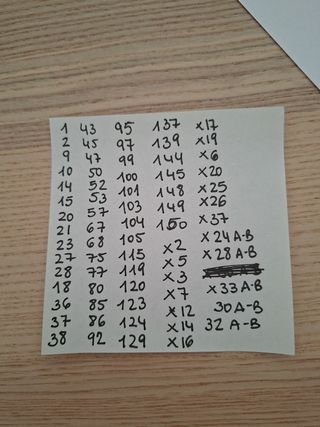 1
2
9
10
14
15
20
21
23
27
28
18
36
37
38
43
45
47
50
52
53
57
67
68
75
77
80
85
86
92
95
97
99
100
101
103
104
105
115
119
120
123
124
129
137
139
144
145
148
149
150
x2
x5
x3
x7
x12
x14
x16
x17
x19
x6
x20
x25
x26
x37
x24 A-B
x28 A-B
x33 A-B
30 A-B
32 A-B